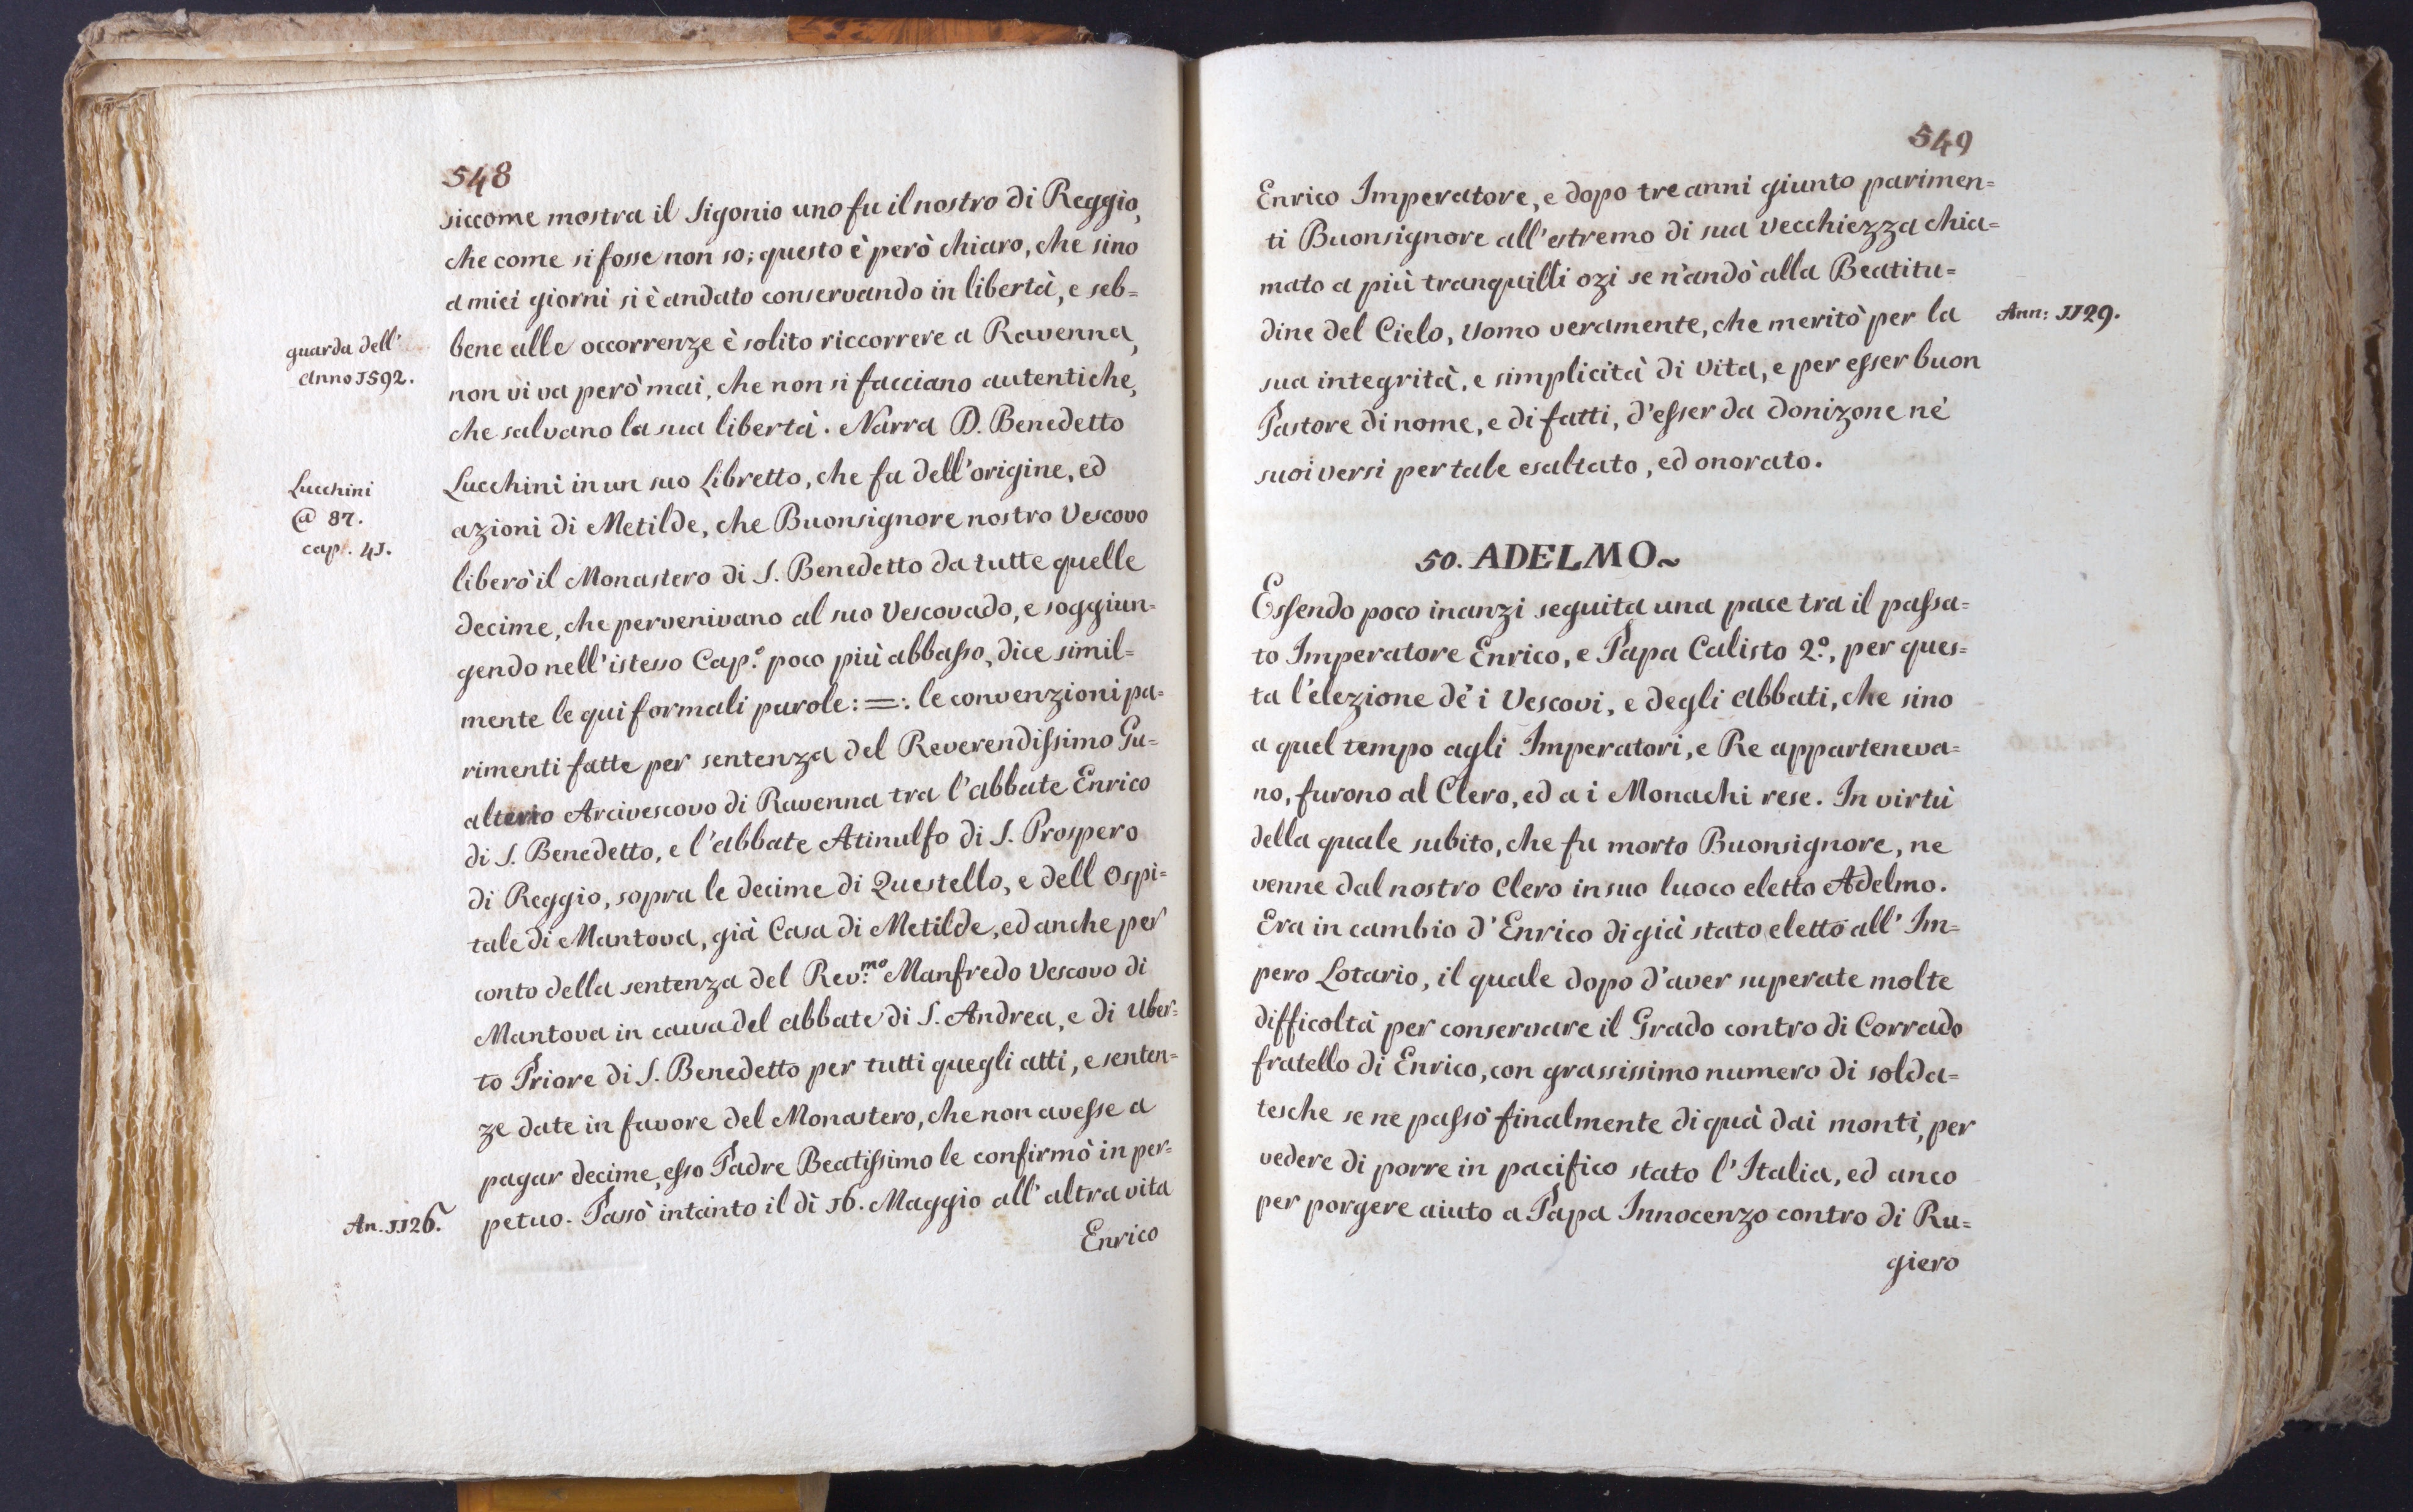 548
siccome mostra il Sigonio uno fu il nostro di Reggio,
che come si fosse non so; questo è però chiaro, che sino
a miei giorni si è andato conservando in libertà, e seb=
guarda dell'
anno 1592.
bene alle occorrenze è solito riccorrere a Ravenna,
non vi va però mai, che non si facciano autentiche,
che salvano la sua libertà. Narra D. Benedetto
Lucchini
@ 87.
cap. 41.
Lucchini in un suo Libretto, che fa dell'origine, ed
azioni di Metilde, che Buonsignore nostro Vescovo
liberò il Monastero di S. Benedetto da tutte quelle
decime, che pervenivano al suo Vescovado, e soggiun=
gendo nell'istesso Cap.º poco più abbasso, dice simil=
mente le qui formali parole: =: le convenzioni pa=
rimenti fatte per sentenza del Reverendissimo Gu=
alterio Arcivescovo di Ravenna tra l'abbate Enrico
di S. Benedetto, e l'abbate Atinulfo di S. Prospero
di Reggio, sopra le decime di Questello, e dell Ospi=
tale di Mantova, già Casa di Metilde, ed anche per
conto della sentenza del Rev.mo Manfredo Vescovo di
Mantova in causa del abbate di S. Andrea, e di Uber=
to Priore di S. Benedetto per tutti quegli atti, e senten=
ze date in favore del Monastero, che non avesse a
pagar decime, esso Padre Beatissimo le confirmò in per=
An. 1126.
petuo. Passò intanto il dì 16. Maggio all'altra vita
Enrico
549
Enrico Imperatore, e dopo tre anni giunto parimen=
ti Buonsignore all'estremo di sua vecchiezza chia=
mato a più tranquilli ozi se n'andò alla Beatitu=
dine del Cielo, Uomo veramente, che meritò per la
Ann: 1129.
sua integrità, e simplicità di vita, e per esser buon
Pastore di nome, e di fatti, d'esser da Donizone nè
suoi versi per tale esaltato, ed onorato.
50. ADELMO~
Essendo poco inanzi seguita una pace tra il passa=
to Imperatore Enrico, e Papa Calisto 2º., per ques=
ta l'elezione dè i Vescovi, e degli Abbati, che sino
a quel tempo agli Imperatori, e Re apparteneva=
no, furono al Clero, ed a i Monachi rese. In virtù
della quale subito, che fu morto Buonsignore, ne
venne dal nostro Clero in suo luoco eletto Adelmo.
Era in cambio d'Enrico di già stato eletto all'Im=
pero Lotario, il quale dopo d'aver superate molte
difficoltà per conservare il Grado contro di Corrado
fratello di Enrico, con grassissimo numero di solda=
tesche se ne passò finalmente di quà dai monti, per
vedere di porre in pacifico stato l'Italia, ed anco
per porgere aiuto a Papa Innocenzo contro di Ru=
giero